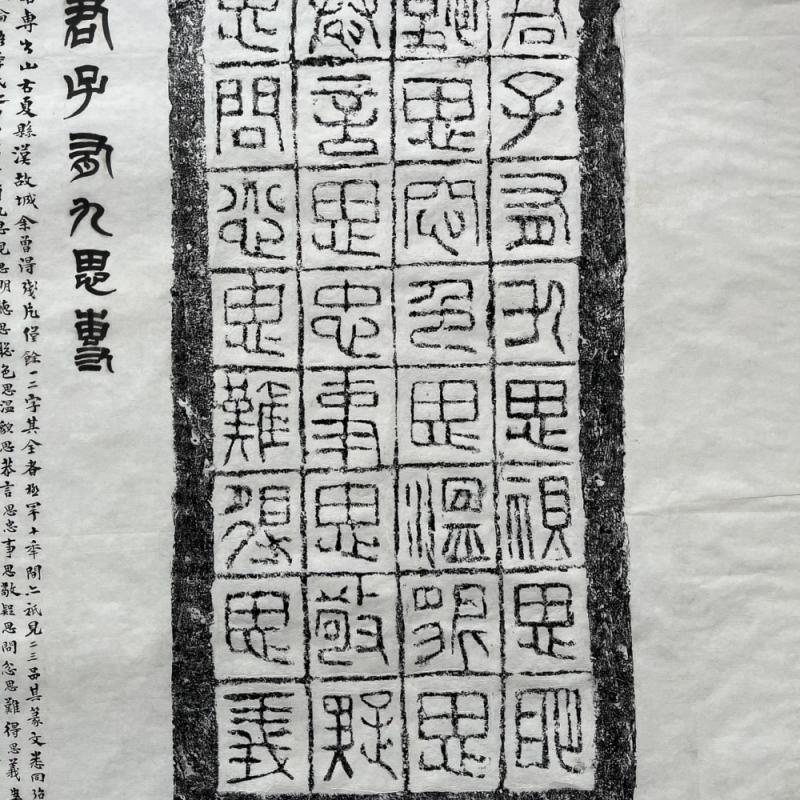 君子有九思視思明
聽思聰色思溫貌思
恭言思忠事思敬疑
思問忿思難得思義
君子有九思專
專出山右夏縣漢故城余曾得殘片僅餘一二字其全者極罕十年間亡祇見二三品其篆文悉同
九思見思明聽思聰色思溫貌思恭言思忠事思敬疑思問忿思難得思義